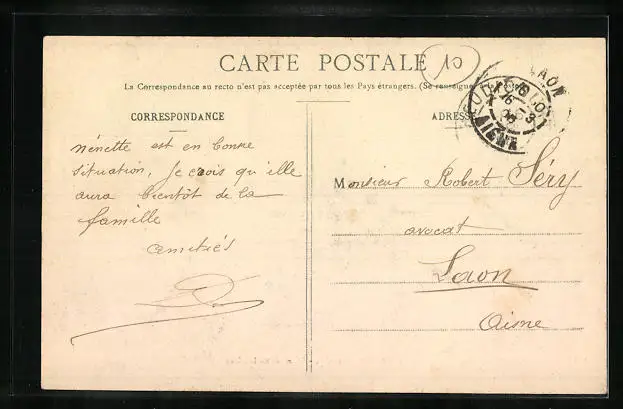 CARTE POSTALE
10
La Correspondance au recto n'est pas acceptée par tous les Pays étrangers. (Se renseigner à la Poste)
CORRESPONDANCE
ADRESSE
LAON
AISNE
nénette est en bonne
situation, Je crois qu'ille
aura bientôt de la
famille
amitiés
Monsieur Robert Séry
avocat
Laon
Aisne